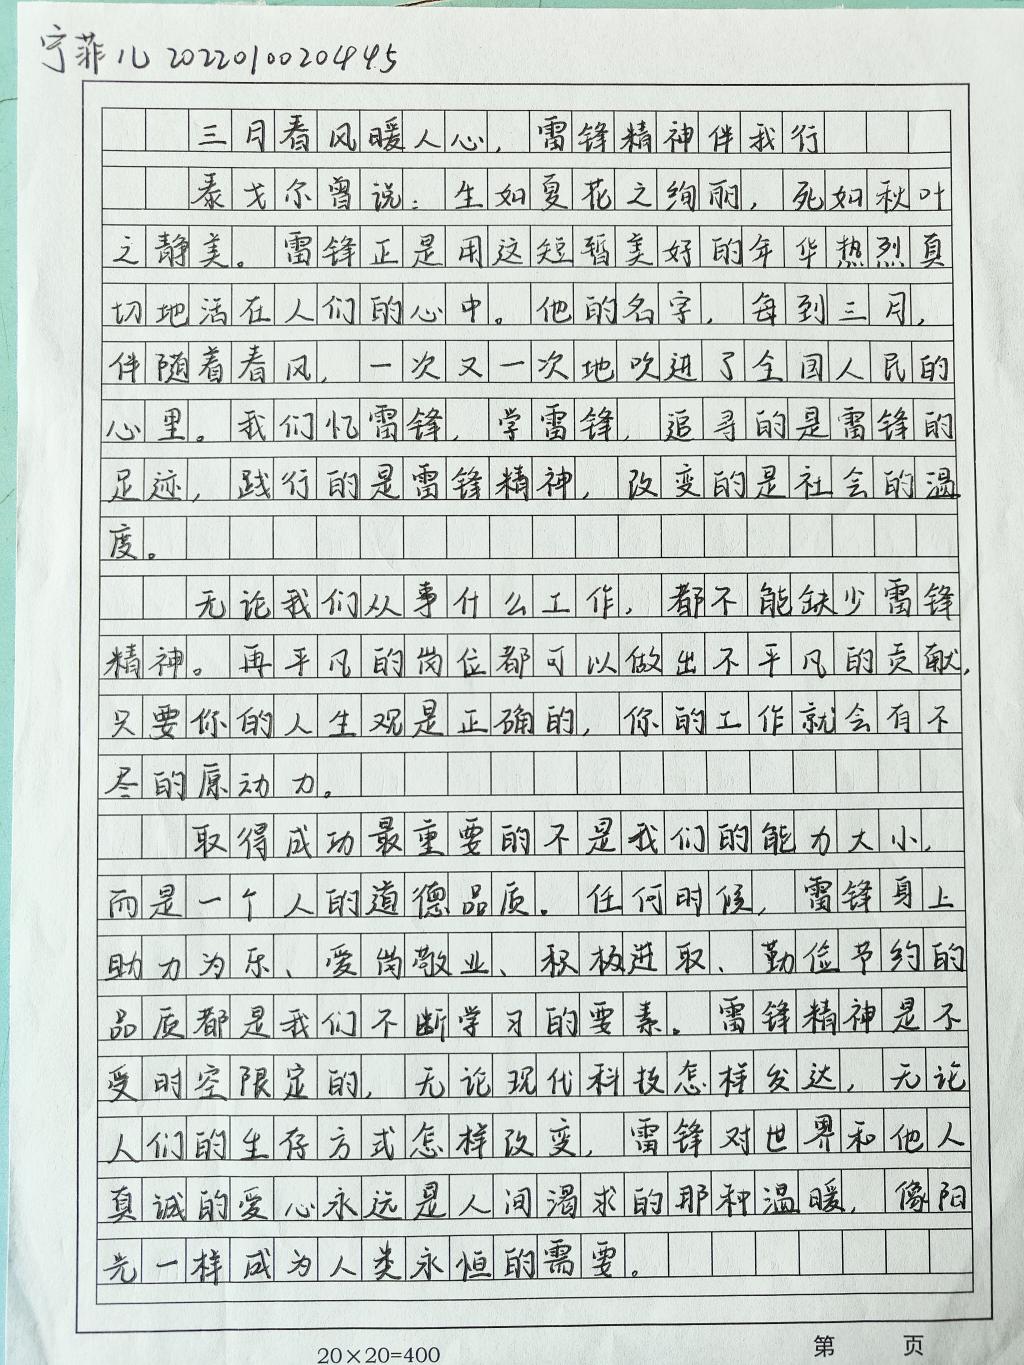 宁菲儿 20220100204445
三月春风暖人心，雷锋精神伴我行
泰戈尔曾说：生如夏花之绚丽，死如秋叶
之静美。雷锋正是用这短暂美好的年华热烈真
切地活在人们的心中。他的名字，每到三月，
伴随着春风，一次又一次地吹进了全国人民的
心里。我们忆雷锋，学雷锋，追寻的是雷锋的
足迹，践行的是雷锋精神，改变的是社会的温
度。
无论我们从事什么工作，都不能缺少雷锋
精神。再平凡的岗位都可以做出不平凡的贡献，
只要你的人生观是正确的，你的工作就会有不
尽的原动力。
取得成功最重要的不是我们的能力大小，
而是一个人的道德品质。任何时候，雷锋身上
助力为乐、爱岗敬业、积极进取、勤俭节约的
品质都是我们不断学习的要素。雷锋精神是不
受时空限定的，无论现代科技怎样发达，无论
人们的生存方式怎样改变，雷锋对世界和他人
真诚的爱心永远是人间渴求的那种温暖，像阳
光一样成为人类永恒的需要。
20×20=400
第 页